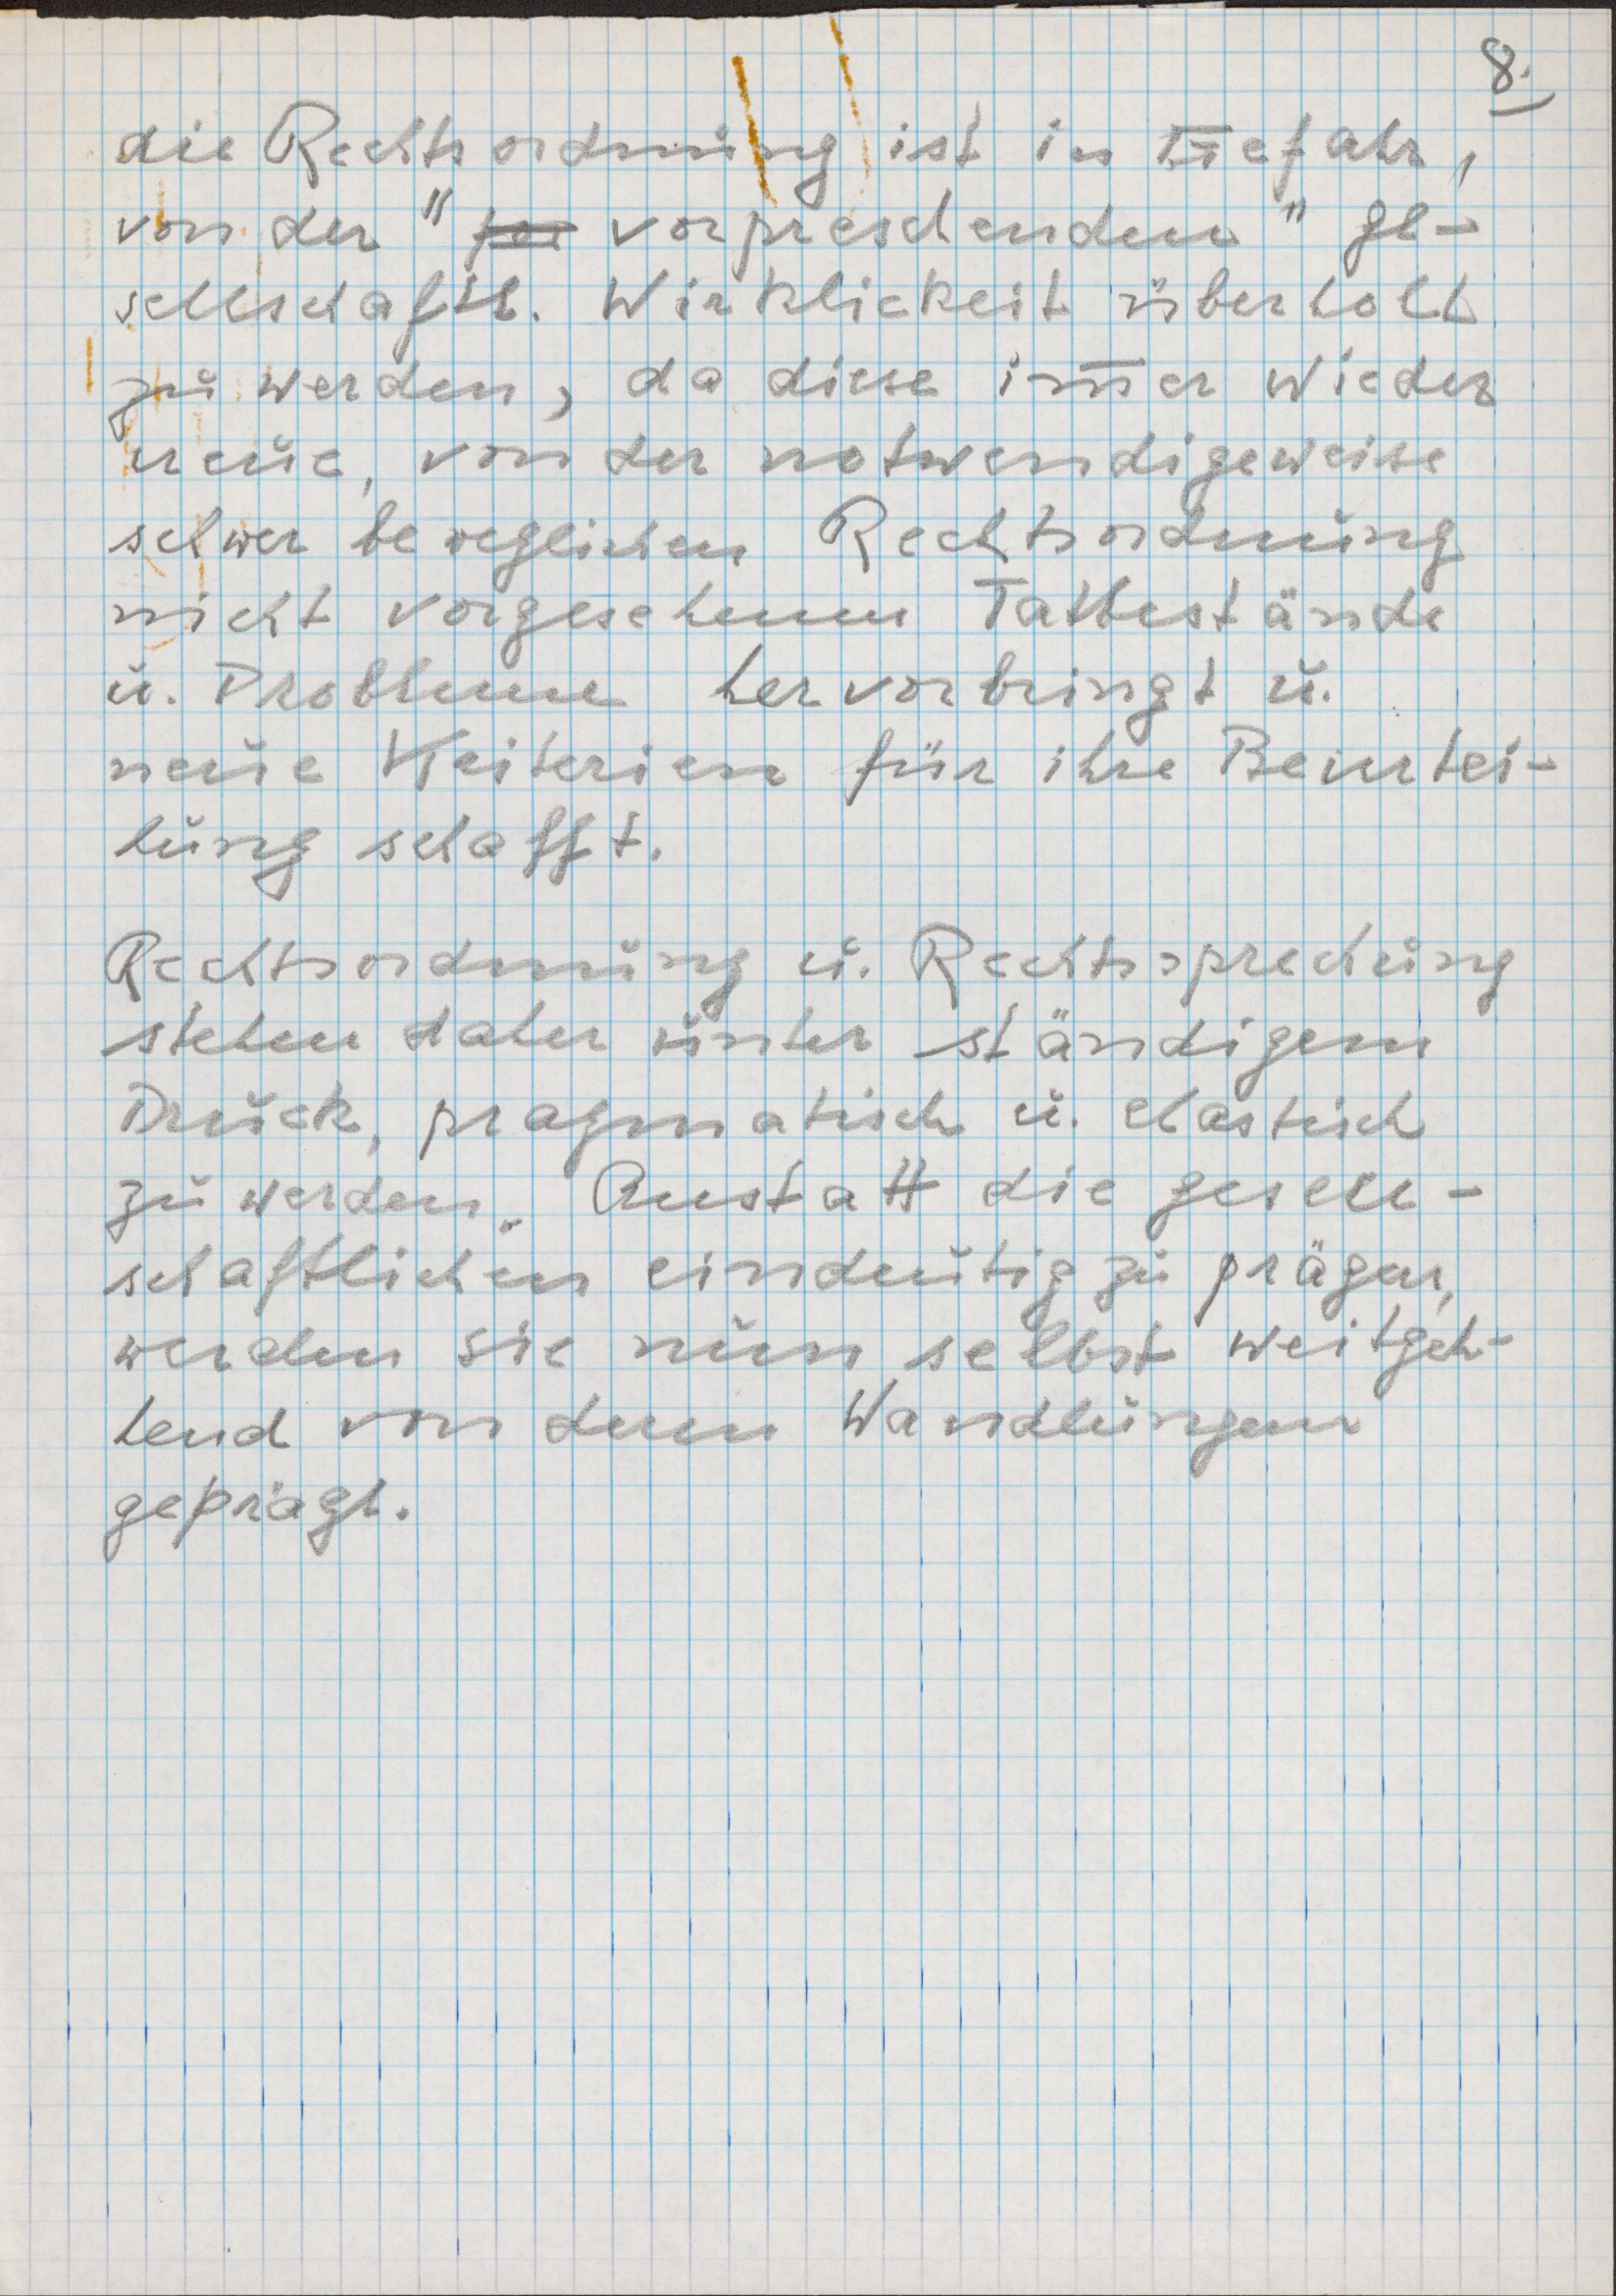 8.
die Rechtsordnung ist in Gefahr,
von der " vorpreschenden" ge-
sellschaftl. Wirklickeit überholt
zu werden, da diese im̅er wieder
neue, von der notwendigeweise
schwer beweglichen Rechtsordnung
nicht vorgesehenen Tatbestände
u. Probleme hervorbringt u.
neue Kriterien für ihre Beurtei-
lung schafft.
Rechtsordnung u. Rechtssprechung
stehen daher unter ständigem
Druck, pragmatisch u. elastisch
zu werden. Anstatt die gesell-
schaftlichen eindeutig zu prägen,
werden sie nun selbst weitgeh-
hend von deren Wandlungen
geprägt.